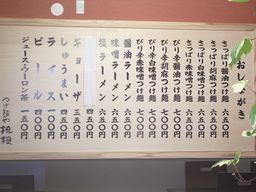 おしながき
さっぱり醤油つけ麺　六五〇円
さっぱり胡麻つけ麺　六五〇円
さっぱり白味噌つけ麺　六五〇円
さっぱり赤味噌つけ麺　六五〇円
ぴり辛醤油つけ麺　六五〇円
ぴり辛胡麻つけ麺　六五〇円
ぴり辛白味噌つけ麺　六五〇円
ぴり辛赤味噌つけ麺　六五〇円
醤油ラーメン　六五〇円
味噌ラーメン　六五〇円
塩ラーメン　六五〇円
ギョーザ　三五〇円
しゅうまい　三五〇円
ライス　一〇〇円
ビール　五〇〇円
ジュース・ウーロン茶　一五〇円
つけ麺や